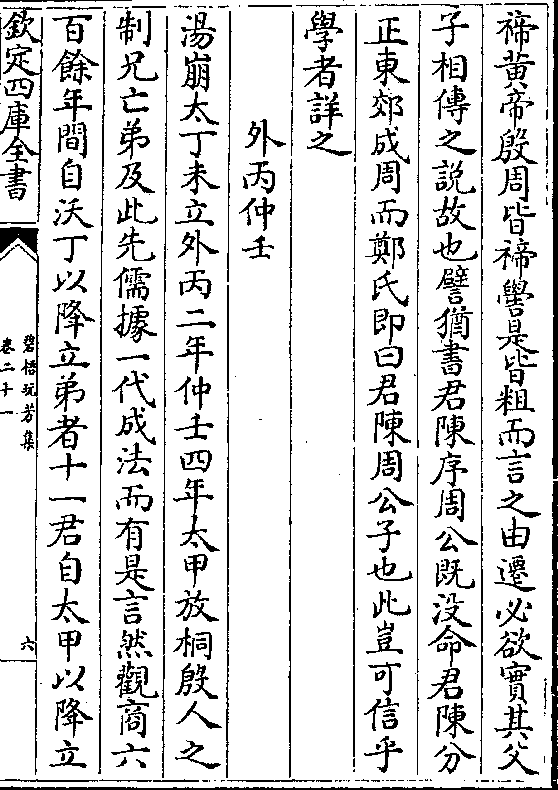 禘黃帝殷周皆禘嚳是皆粗而言之由遷必欲實其父
子相傳之説故也譬猶書君陳序周公既没命君陳分
正東郊成周而鄭氏即曰君陳周公子也此豈可信乎
學者詳之
外丙仲壬
湯崩太丁未立外丙二年仲壬四年太甲放桐殷人之
制兄亡弟及此先儒據一代成法而有是言然觀商六
百餘年間自沃丁以降立弟者十一君自太甲以降立
欽定四庫全書
碧梧玩芳集
卷二十一
六